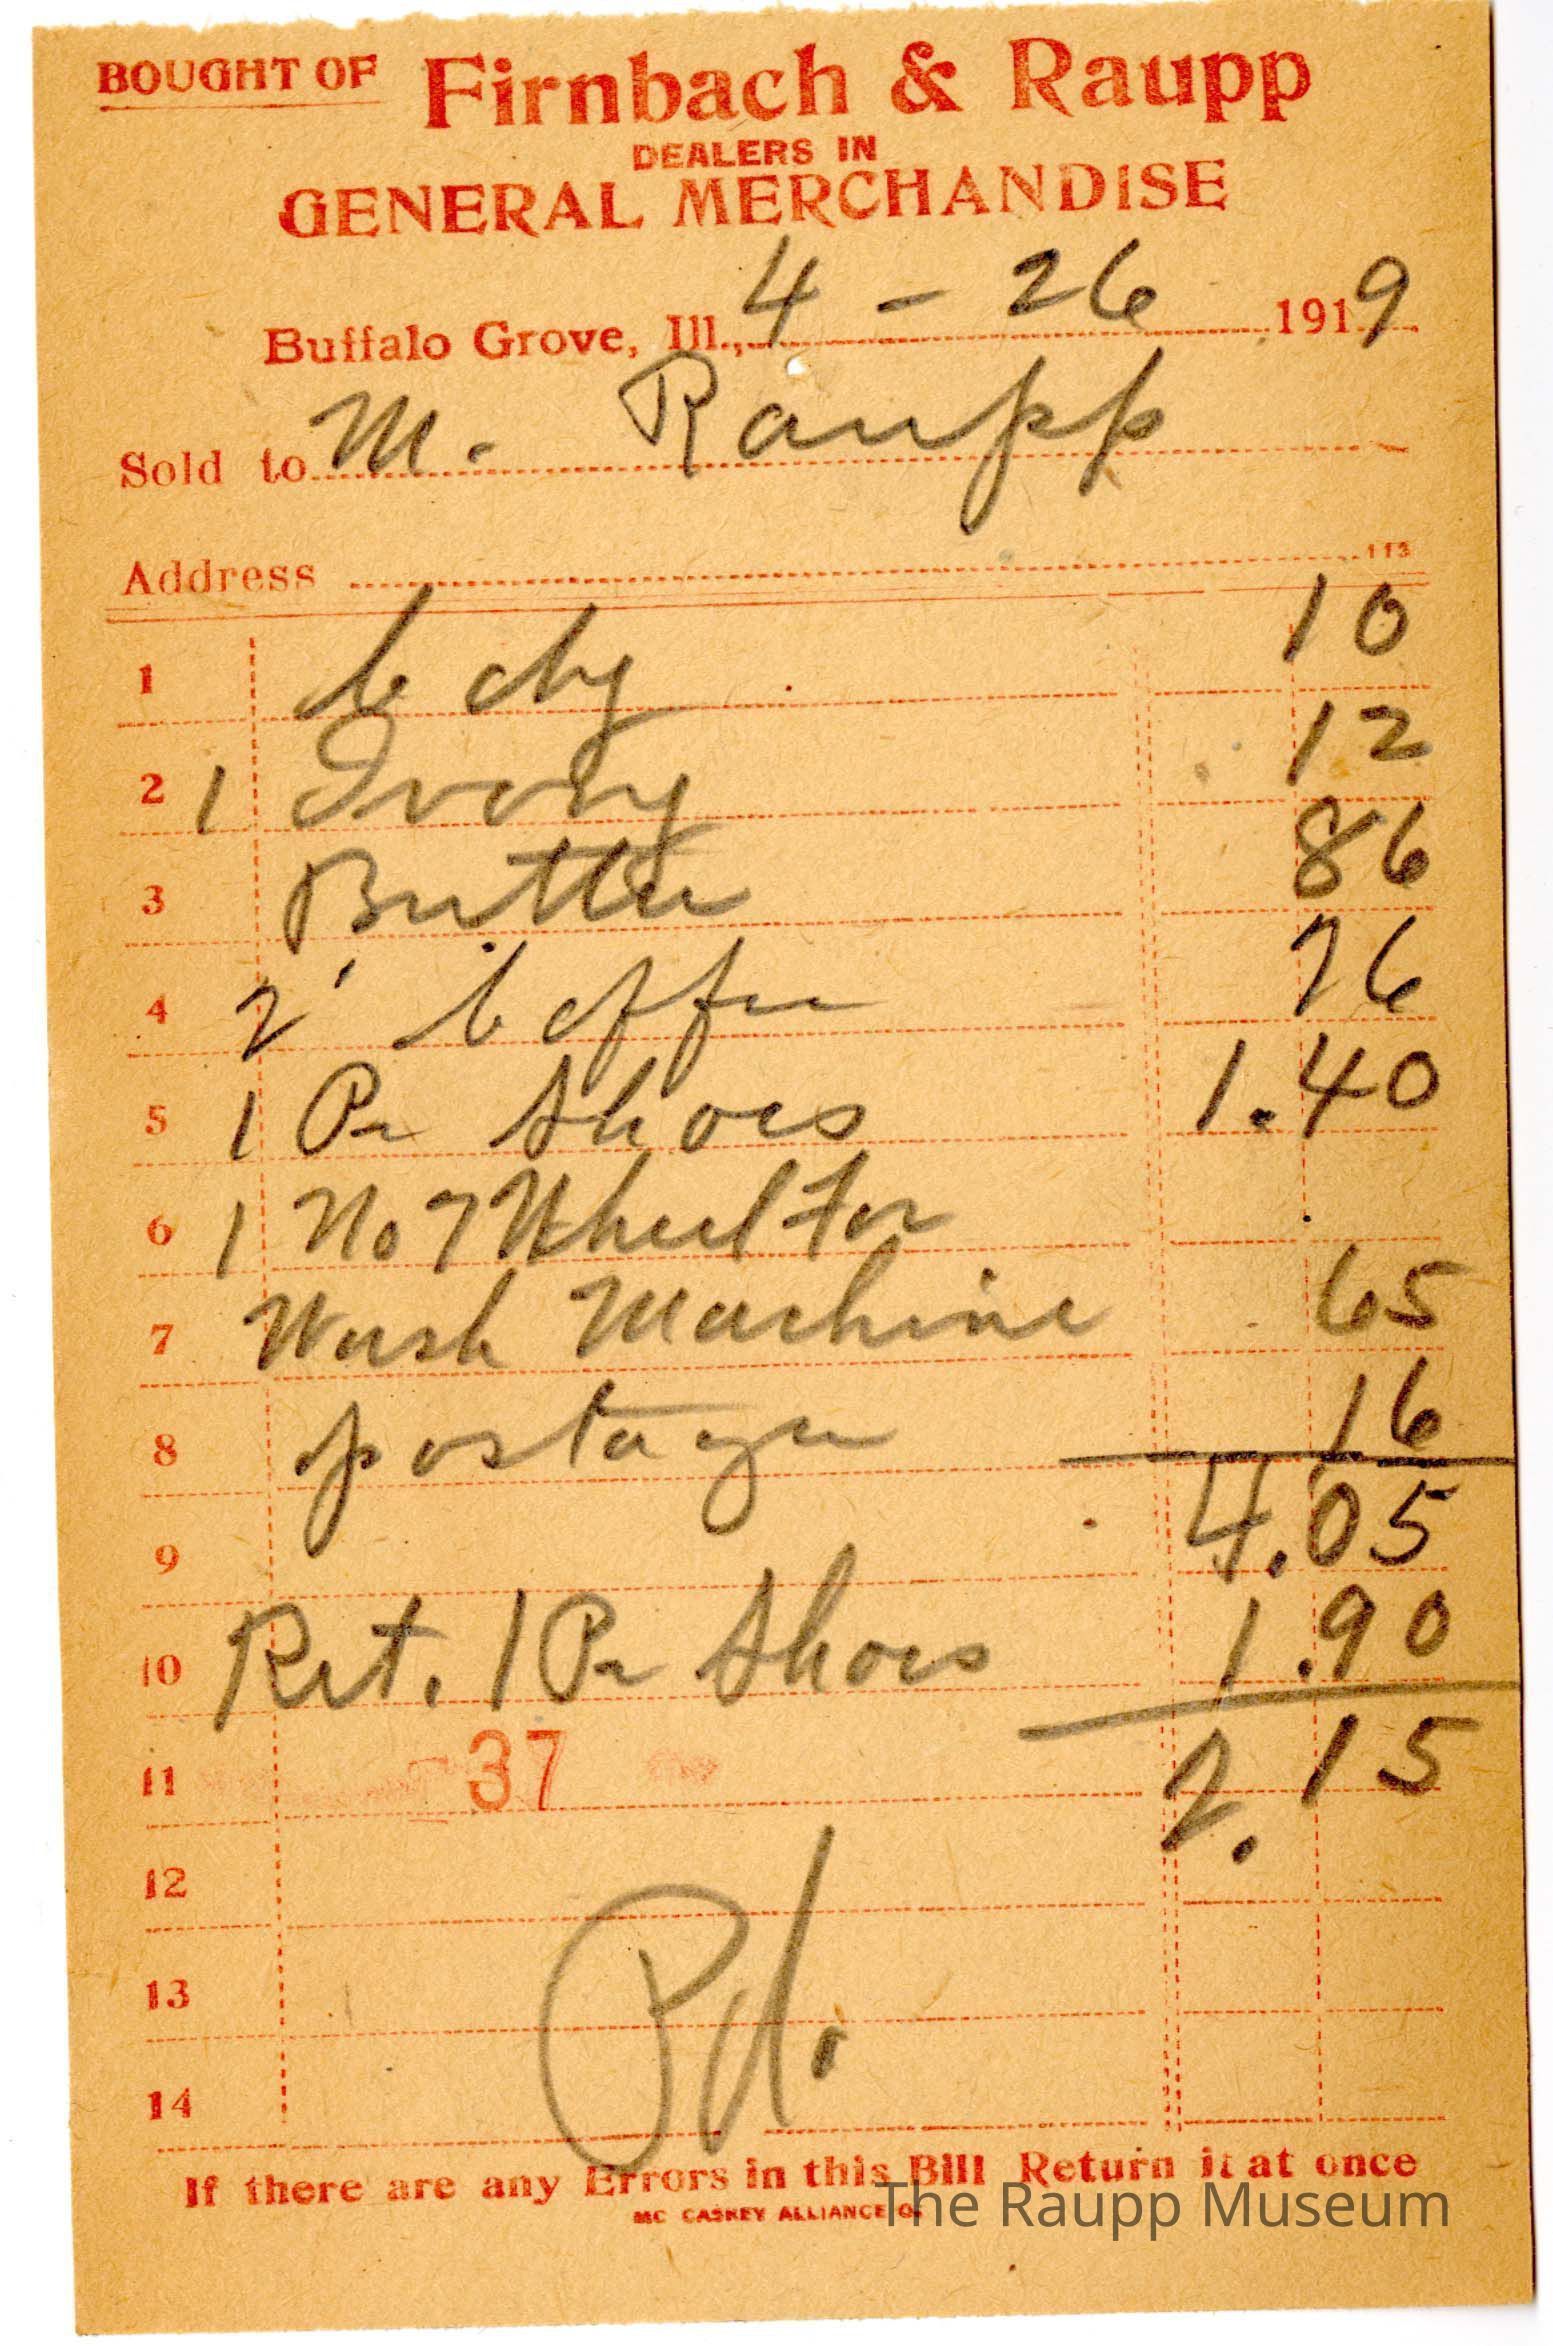 BOUGHT OF Firnbach & Raupp
DEALERS IN
GENERAL MERCHANDISE
Buffalo Grove, Ill., 4 - 26 1919
Sold to M. Raupp
Address 113
1 Cdy 10
2 1 Ivory 12
3 Butter 86
4 2' Coffee 76
5 1 Pr Shoes 1.40
6 1 No 7 Wheel For
7 Wash Machine 65
8 postage 16
9 4.05
10 Ret. 1 Pr Shoes 1.90
11 37 2.15
12
13 Pd.
14
If there are any Errors in this Bill Return it at once
MC CASKEY ALLIANCE O.
The Raupp Museum